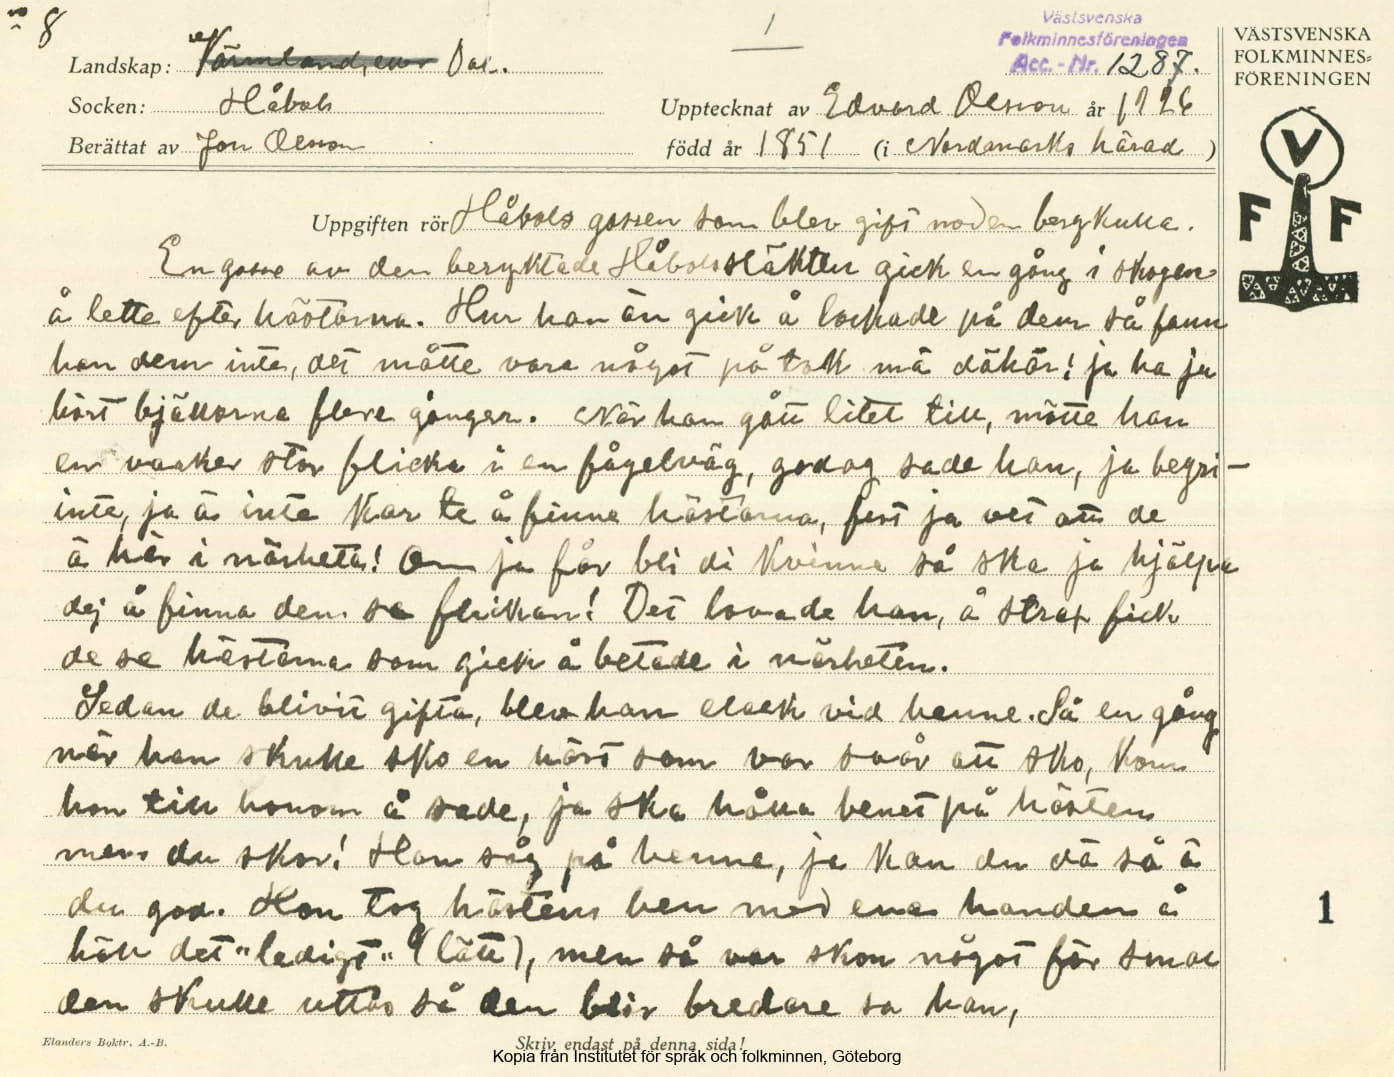 8
1
Västsvenska
Folkminnesföreningen
Acc. - Nr. 1287.
VÄSTSVENSKA
FOLKMINNES=
FÖRENINGEN
V
F F
Landskap: Värmland, Dal.
Socken: Håbols
Upptecknat av Edvard Olsson år 1926
Berättat av Jon Olsson född år 1851 (i Nordmarks härad )
Uppgiften rör Håbols gossen som blev gift med en bergkulla.
En gosse av den beryktade Håbolssläkten gick en gång i skogen
å lette efter hästarna. Hur han än gick å lockade på dem så fann
han dem inte, det måtte vara något på tok mä dähär! ja ha ju
hört bjällorna flere gånger. När han gått litet till, mötte han
en vacker stor flicka i en fågelväg, godag sade han, ja begri-
inte, ja ä inte kar te å finne hästarna, fest ja vet att de
ä här i närheta! Om ja får bli di kvinna så ska ja hjälpa
dej å finna dem sa flickan! Det lovade han, å strax fick
de se hästarna som gick å betade i närheten.
Sedan de blivit gifta, blev han elack vid henne. Så en gång
när han skulle sko en häst som var svår att sko, kom
hon till honom å sade, ja ska hålla benet på hästen
mens du skor! Han såg på henne, ja kan du dä så ä
du god. Hon tog hästens ben med ena handen å
höll det "ledigt" (lätt), men så var skon något för smal
den skulle uttas så den blir bredare sa han,
1
Elanders Boktr. A.-B.
Skriv endast på denna sida!
Kopia från Institutet för språk och folkminnen, Göteborg